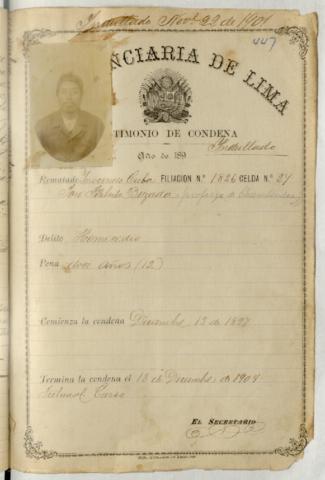 Indultado Novbe 22 de 1901
447
NCIARIA DE LIMA
TIMONIO DE CONDENA
Año de 189
Indultado
Rematado Inocencio FILIACION N.º 1826 CELDA N.º 27
José
Delito Homicidio
Pena doce años (12)
Comienza la condena Diciembre 13 de 1897
Termina la condena el 13 de Diciembre de 1909
Tribunal Cuzco
EL SECRETARIO